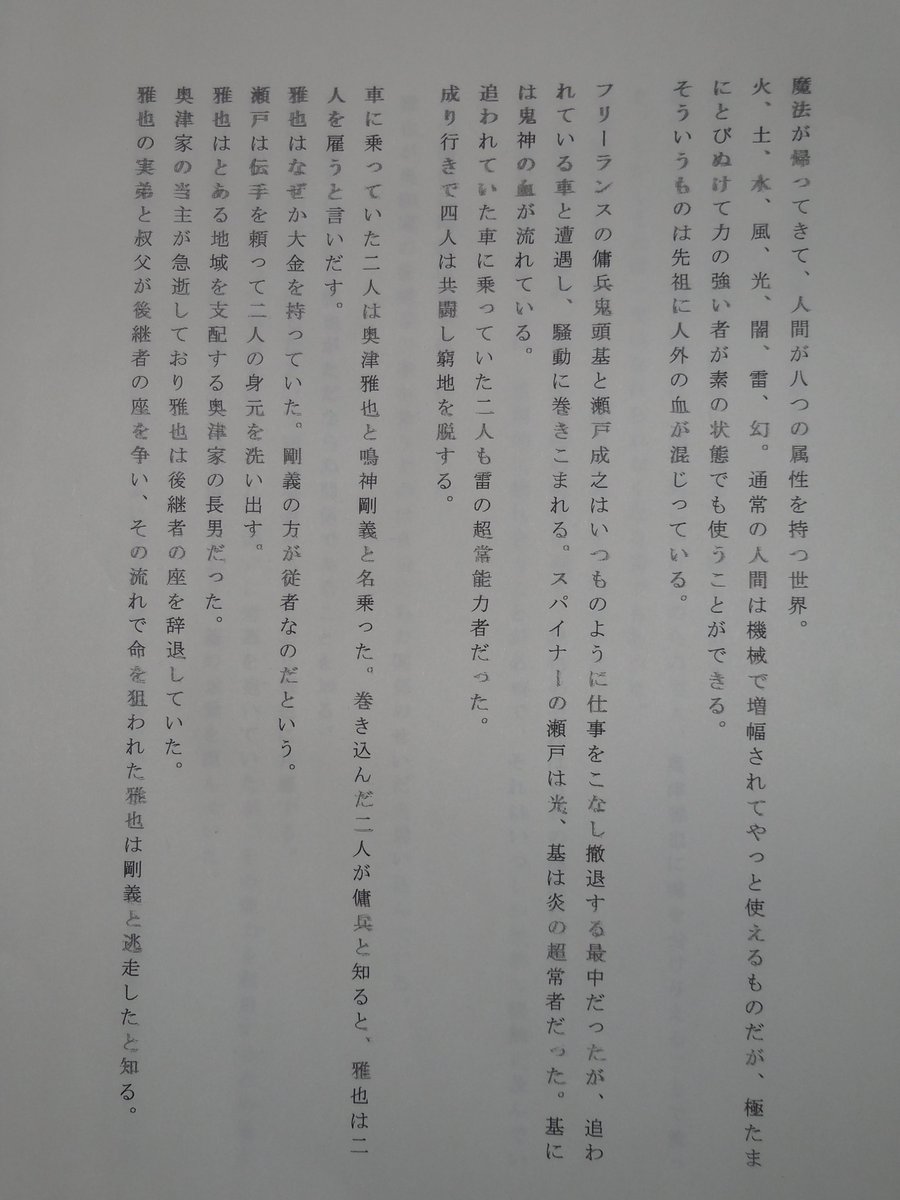 魔法が帰ってきて、人間が八つの属性を持つ世界。
火、土、水、風、光、闇、雷、幻。通常の人間は機械で増幅されてやっと使えるものだが、極たま
にとびぬけて力の強い者が素の状態でも使うことができる。
そういうものは先祖に人外の血が混じっている。
フリーランスの傭兵鬼頭基と瀬戸成之はいつものように仕事をこなし撤退する最中だったが、追わ
れている車と遭遇し、騒動に巻きこまれる。スパイナーの瀬戸は光、基は炎の超常者だった。基に
は鬼神の血が流れている。
追われていた車に乗っていた二人も雷の超常能力者だった。
成り行きで四人は共闘し窮地を脱する。
車に乗っていた二人は奥津雅也と鳴神剛義と名乗った。巻き込んだ二人が傭兵と知ると、雅也は二
人を雇うと言いだす。
雅也はなぜか大金を持っていた。剛義の方が従者なのだという。
瀬戸は伝手を頼って二人の身元を洗い出す。
雅也はとある地域を支配する奥津家の長男だった。
奥津家の当主が急逝しており雅也は後継者の座を辞退していた。
雅也の実弟と叔父が後継者の座を争い、その流れで命を狙われた雅也は剛義と逃走したと知る。